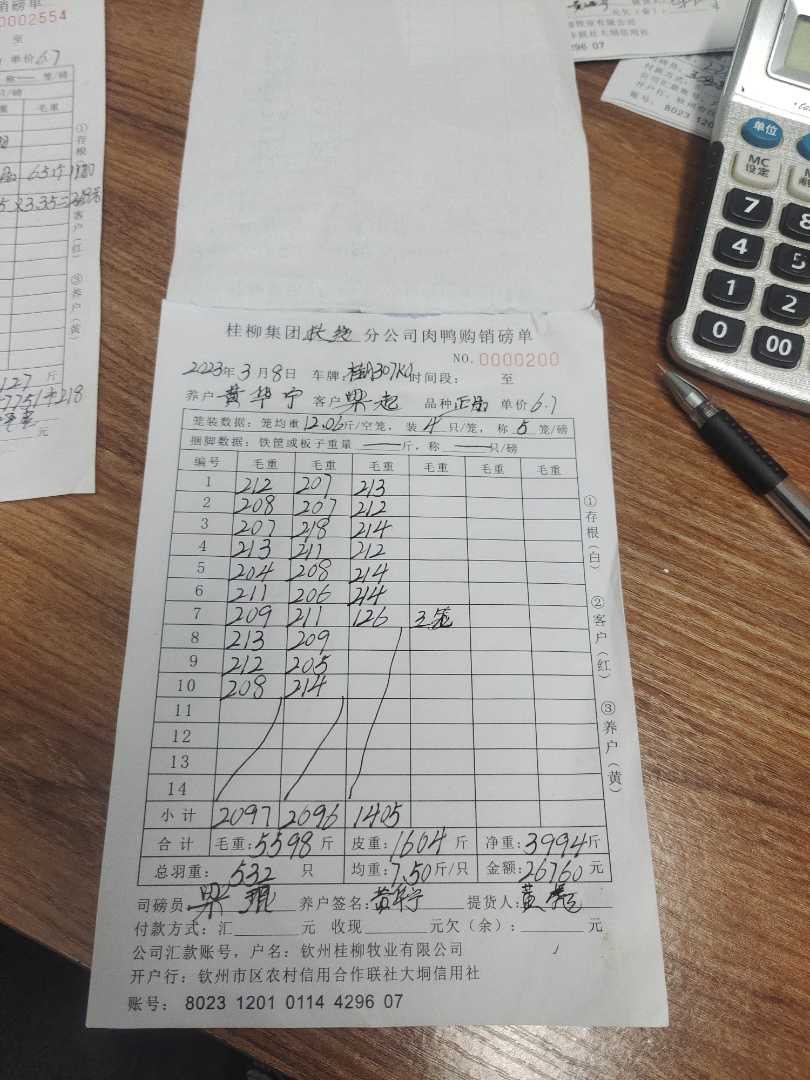 桂柳集团 分公司肉鸭购销磅单
NO.0000200
2023年3月8日 车牌: 时间段: 至
养户 黄华宁 客户 梁起 品种 正品 单价 6.7
笼装数据: 笼均重12.06斤/空笼, 装4只/笼, 称5笼/磅
捆脚数据: 铁筐或板子重量 — 斤, 称 — 只/磅
编号 毛重 毛重 毛重 毛重 毛重 毛重
1 212 207 213
2 208 207 212
3 207 218 214
4 213 211 212
5 204 208 214
6 211 206 214
7 209 211 126 三笼
8 213 209
9 212 205
10 208 214
11
12
13
14
小计 2097 2096 1405
合计 毛重:5598斤 皮重:1604斤 净重:3994斤
总羽重: 532 只 均重:7.50斤/只 金额:26760元
司磅员 梁 养户签名: 黄华宁 提货人: 黄
付款方式: 汇 元 收现 元欠(余): 元
公司汇款账号, 户名: 钦州桂柳牧业有限公司
开户行: 钦州市区农村信用合作联社大垌信用社
账号: 8023 1201 0114 4296 07
①存根(白)
②客户(红)
③养户(黄)
磅单
0002554
至
单价6.7
笼/磅
只/磅
毛重
①存根
客户(红)
③养户(黄)
斤
元
牧业有限公司
联社大垌信用社
4296 07
付款方式:
公司汇款账
开户行: 钦州
账号: 8023 1201
单位
MC
设定
7
8
4
5
1
2
0
00